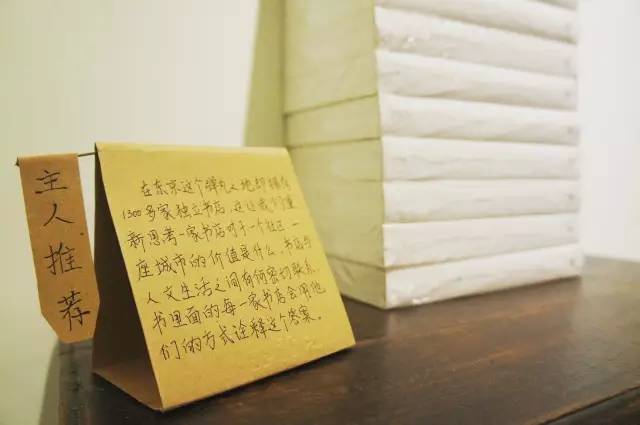 主人推荐
在东京这个弹丸之地却拥有
1300多家独立书店,这让我们重
新思考一家书店对于一个社区、一
座城市的价值是什么,书店与
人文生活之间有何密切联系,
书里面的每一家书店会用他
们的方式诠释这个答案。